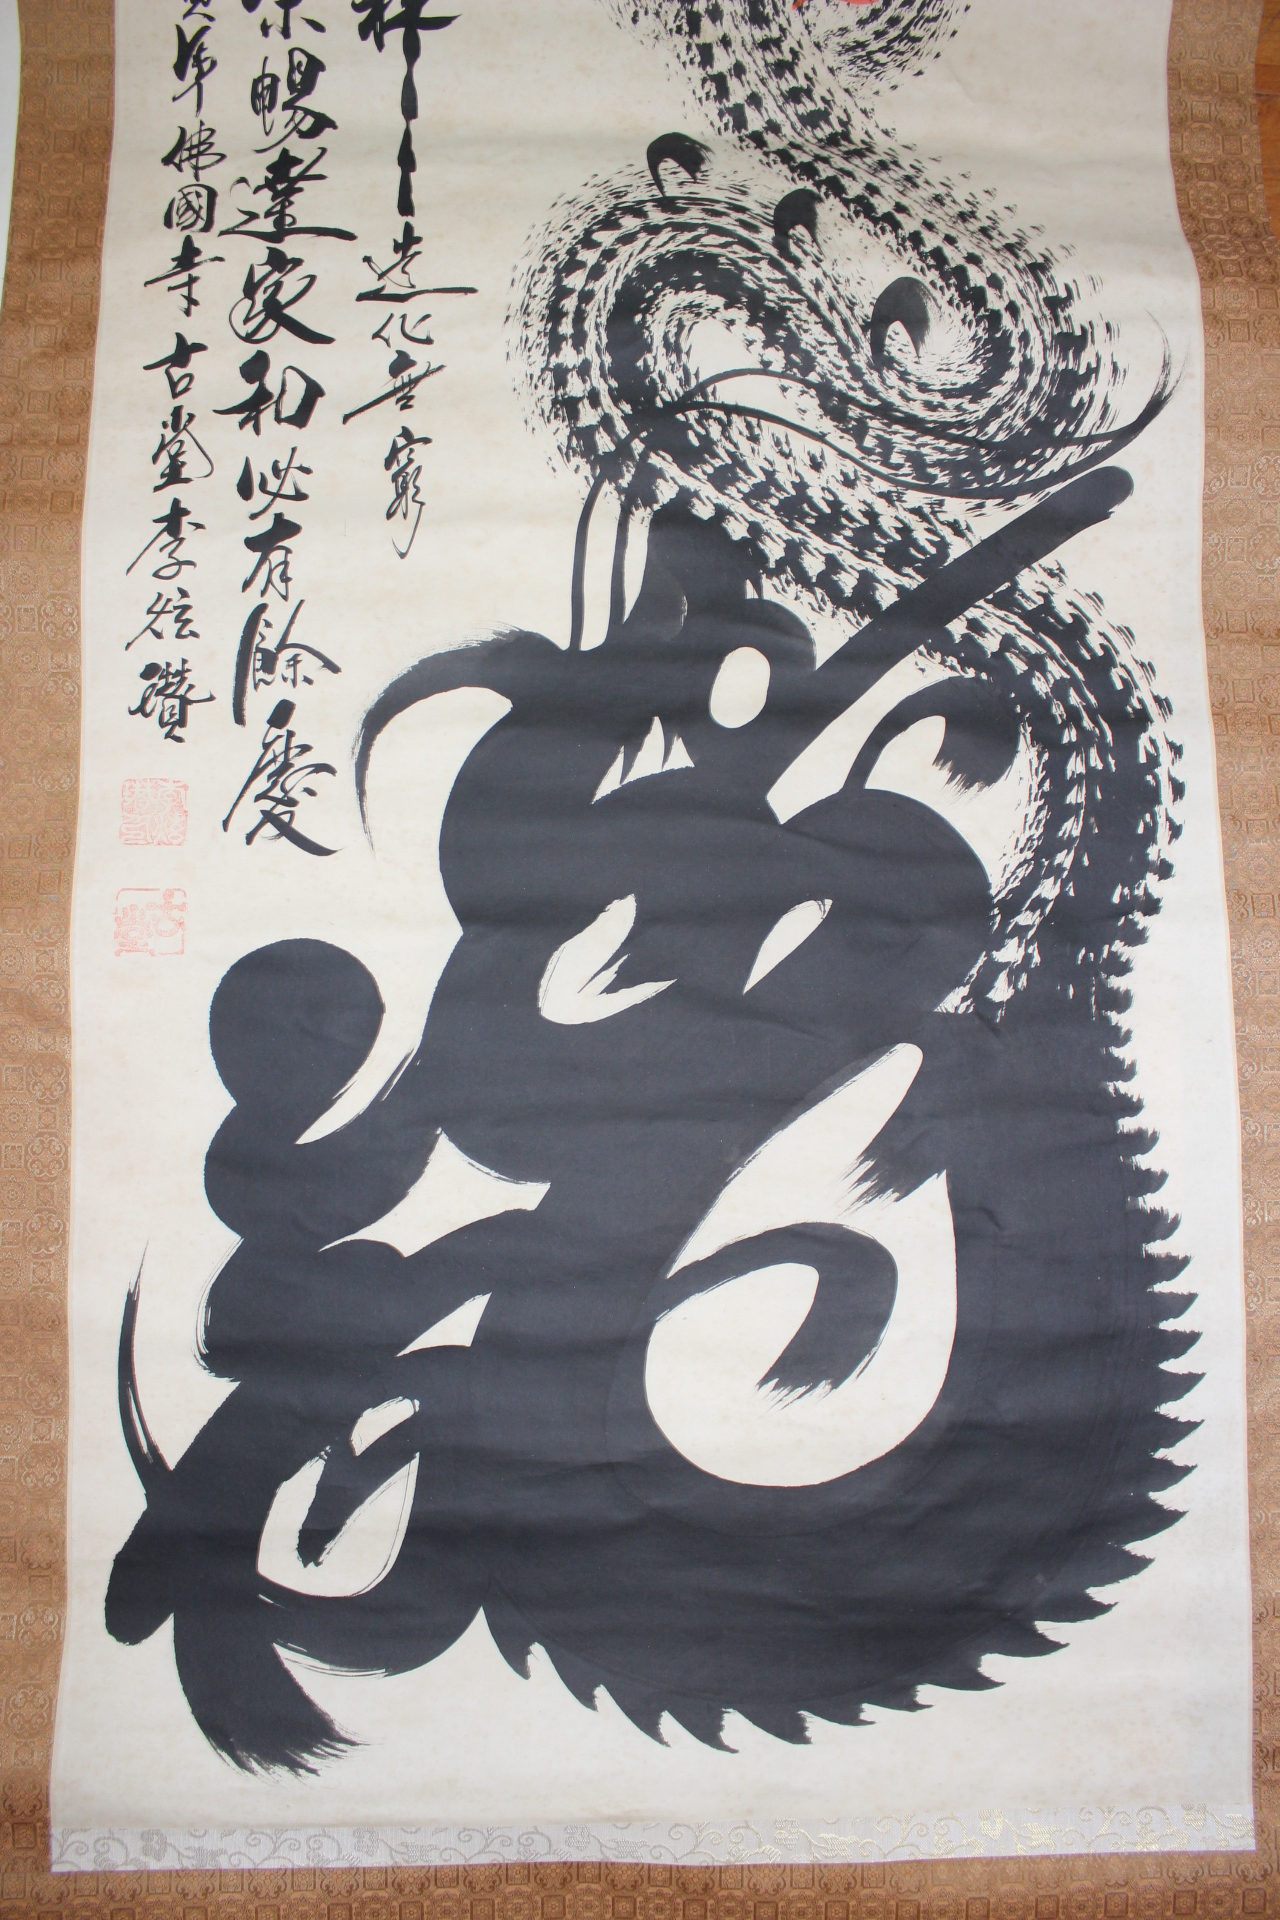 龍
造化無窮
暢達家和必有餘慶
佛國寺古堂李炫讚
古堂